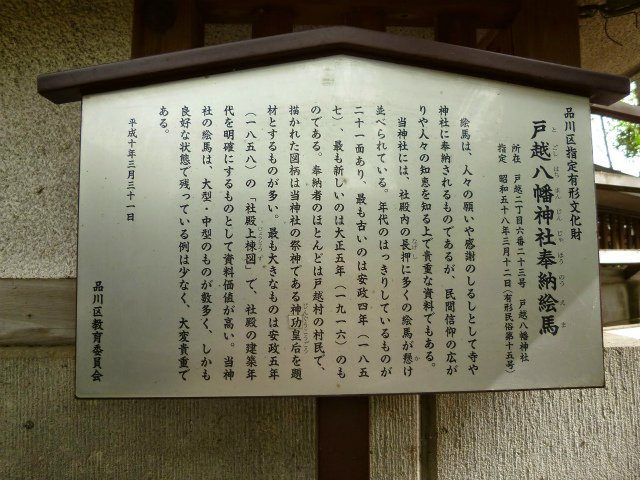 品川区指定有形文化財
戸越八幡神社奉納絵馬
とごしはちまんじんじゃほうのうえま
所在 戸越二丁目六番二十三号 戸越八幡神社
指定 昭和五十八年三月十二日(有形民俗第十五号)
絵馬は、人々の願いや感謝のしるしとして寺や
神社に奉納されるものであるが、民間信仰の広が
りや人々の知恵を知る上で貴重な資料でもある。
当神社には、社殿内の長押に多くの絵馬が懸け
並べられている。年代のはっきりしているものが
二十一面あり、最も古いのは安政四年(一八五
七)、最も新しいのは大正五年(一九一六)のも
のである。奉納者のほとんどは戸越村の村民で、
描かれた図柄は当神社の祭神である神功皇后を題
材とするものが多い。最も大きなものは安政五年
(一八五八)の「社殿上棟図」で、社殿の建築年
代を明確にするものとして資料価値が高い。当神
社の絵馬は、大型・中型のものが数多く、しかも
良好な状態で残っている例は少なく、大変貴重で
ある。
平成十年三月三十一日
品川区教育委員会